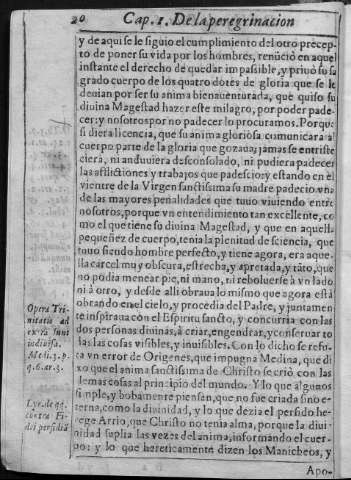 20 Cap. 1. De la peregrinacion
y de aqui se le siguio el cumplimiento del otro precep-
to de poner su vida por los hombres, renũciò en aquel
instante el derecho de quedar impassible, y priuò su sa
grado cuerpo de los quatro dotes de gloria que se le
deuian por ser su anima bienauenturada, que quiso su
diuina Magestad hazer este milagro, por poder pade-
cer: y nosotros por no padecer lo procuramos. Porque
si diera licencia, que su anima gloriosa comunicara al
cuerpo parte de la gloria que gozaua, jamas se entriste
ciera, ni anduuiera desconsolado, ni pudiera padecer
las afflictiones y trabajos que padescio: y estando en el
vientre de la Virgen sanctissima su madre padecio vna
de las mayores penalidades que tuuo viuiendo entre
nosotros, porque vn entendimiento tan excellente, co
mo el que tiene su diuina Magestad, y que en aquella
pequeñez de cuerpo, tenia la plenitud de sciencia, que
tuuo siendo hombre perfecto, y tiene agora, era aque-
lla carcel muy obscura, estrecha, y apretada, y tãto, que
no podia menear pie, ni mano, ni reboluerse à vn lado
ni à otro, y desde alli obraua lo mismo que agora està
obrando en el cielo, y procedia del Padre, y juntamen
te inspiraua con el Espiritu sancto, y concurria con las
dos personas diuinas, à criar, engendrar, y conseruar to
las las cosas visibles, y inuisibles. Con lo dicho se refu-
ta vn error de Origenes, que impugna Medina, que di
xo que el anima sanctissima de Christo se criò con las
demas cosas al principio del mundo. Y lo que algunos
simple, y bobamente piensan, que no fue criada sino e-
terna, como la diuinidad, y lo que dezia el perfido he-
rege Arrio, que Christo no tenia alma, porque la diui-
nidad suplia las vezes del anima, informando el cuer-
po: y lo que hereticamente dizen los Manicheos, y
Apo-
Opera Tri-
nitatis ad
extra sunt
indiuisa.
Medi. 3. p.
q. 6. ar. 3.
contra Fi-
dei perfidiã